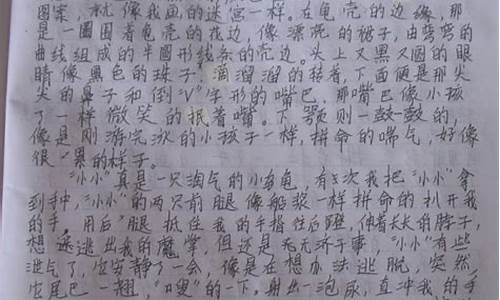 图案，就像我画的迷宫一样。在龟壳的边缘，那
是一圈围着龟壳的花边，像漂亮的裙子，由弯弯的
曲线组成的半圆形线条的壳边。头上又黑又圆的眼
睛像黑色的珠子，滴溜溜的转着，下面便是那尖
尖的鼻子和倒"V"字形的嘴巴，那嘴巴像小孩
了一样微笑的抿着嘴。下颚则一鼓一鼓的，
像是刚游完泳的小孩子一样，拼命的喘气，好像
很累的样子。
"小小"真是一只淘气的小乌龟，有次我把"小小"拿
到手中，"小小"的两只前腿像船桨一样拼命的扒开我
的手，用后腿抵住我的手指往后蹬，伸着长长的脖子，
想逃出我的魔掌，但还是无无济于事，"小小"有些
泄气了，它安静了一会，像是在想办法逃脱，突然
它尾巴一翘，"嗖"的一下，射出一泡尿，直冲我的手